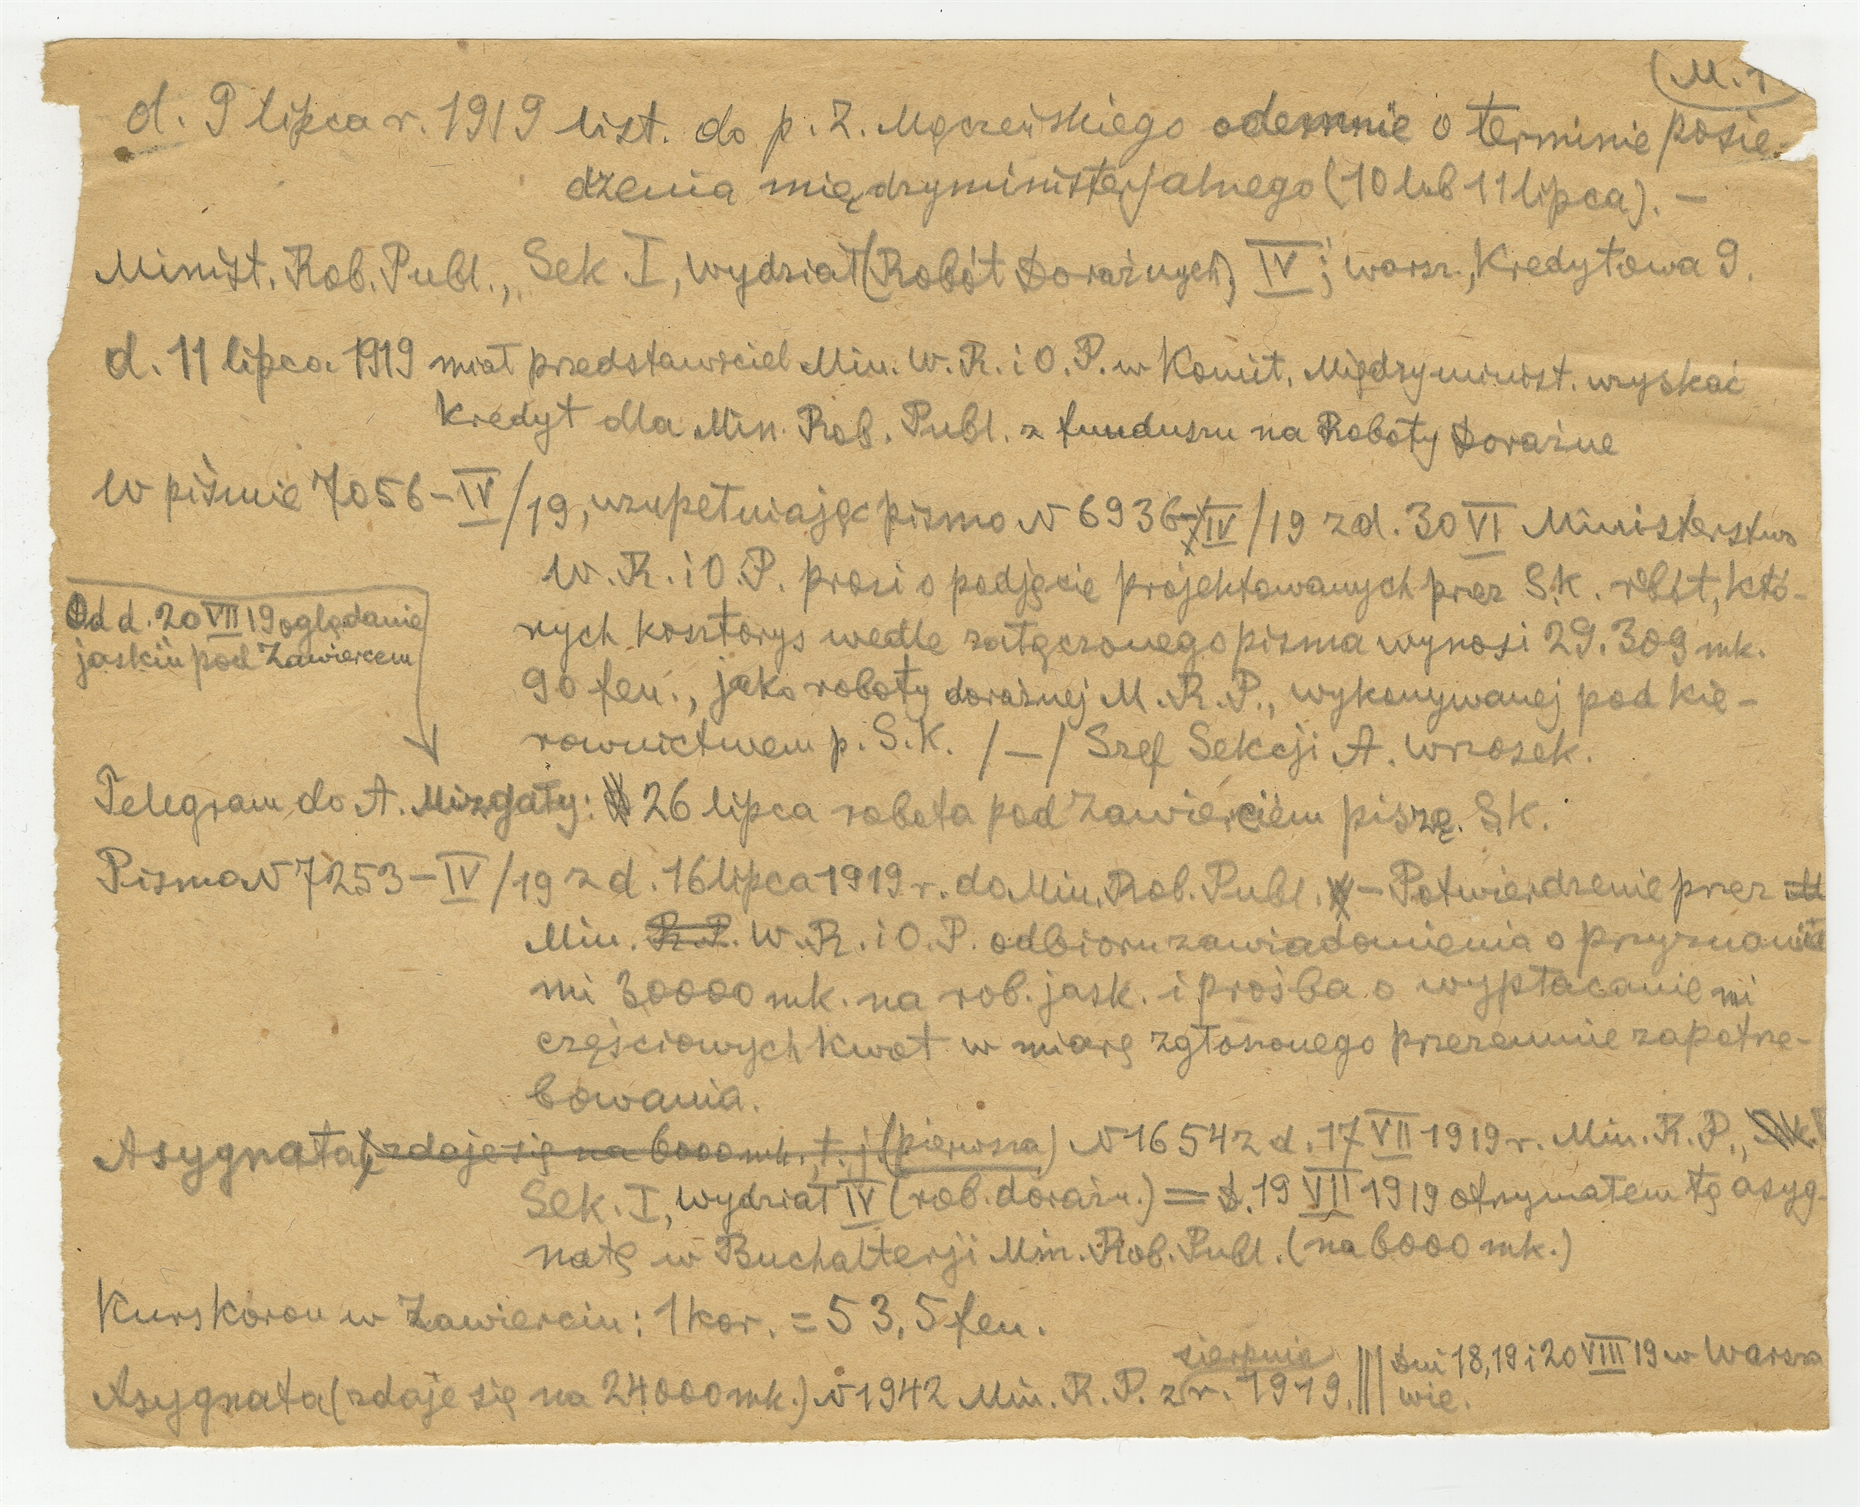 (M. 1
d. 9 lipca r. 1919 list. do p. Z. Mączeńskiego odemnie o terminie posie-
dzenia międzyministerjalnego (10 lub 11 lipca). —
Minist. Rob. Publ., Sek. I, Wydział (Robót Doraźnych) IV; Warsz., Kredytowa 9.
d. 11 lipca 1919 miał przedstawiciel Min. W. R. i O. P. w Komit. Międzyminist. uzyskać
kredyt dla Min. Rob. Publ. z funduszu na Roboty Doraźne
W piśmie 7056-IV/19, uzupełniając pismo N 6936-IV/19 z d. 30 VI Ministerstwo
W. R. i O. P. prosi o podjęcie projektowanych przez S.K. robót, któ-
rych kosztorys wedle załączonego pisma wynosi 29.309 mk.
90 fen., jako roboty doraźnej M. R. P., wykonywanej pod kie-
rownictwem p. S.K. /—/ Szef Sekcji A. Wrzosek.
Od d. 20 VII 19 oglądanie
jaskiń pod Zawierciem
Telegram do A. Mizgały: 26 lipca robota pod Zawierciem piszę. S.K.
Pismo N 7253-IV/19 z d. 16 lipca 1919 r. do Min. Rob. Publ. - Potwierdzenie przez M
Min. R. P. W. R. i O. P. odbioru zawiadomienia o przyznaniu
mi 30000 mk. na rob. jask. i prośba o wypłacanie mi
częściowych kwot w miarę zgłoszonego przezemnie zapotrze-
bowania.
Asygnata (zdaje się na 6000 mk., t. j. (pierwsza) N 16542 d. 17 VII 1919 r. Min. R. P.,
Sek. I, Wydział IV (rob. doraźn.) = d. 19 VII 1919 otrzymałem tę asyg-
natę w Buchalterji Min. Rob. Publ. (na 6000 mk.)
Kurs koron w Zawierciu: 1 kor. = 53,5 fen.
Asygnata (zdaje się na 24000 mk.) N 1942 Min. R. P. z sierpnia r. 1919. ||| Dni 18, 19 i 20 VIII 19 w Warsza
wie.